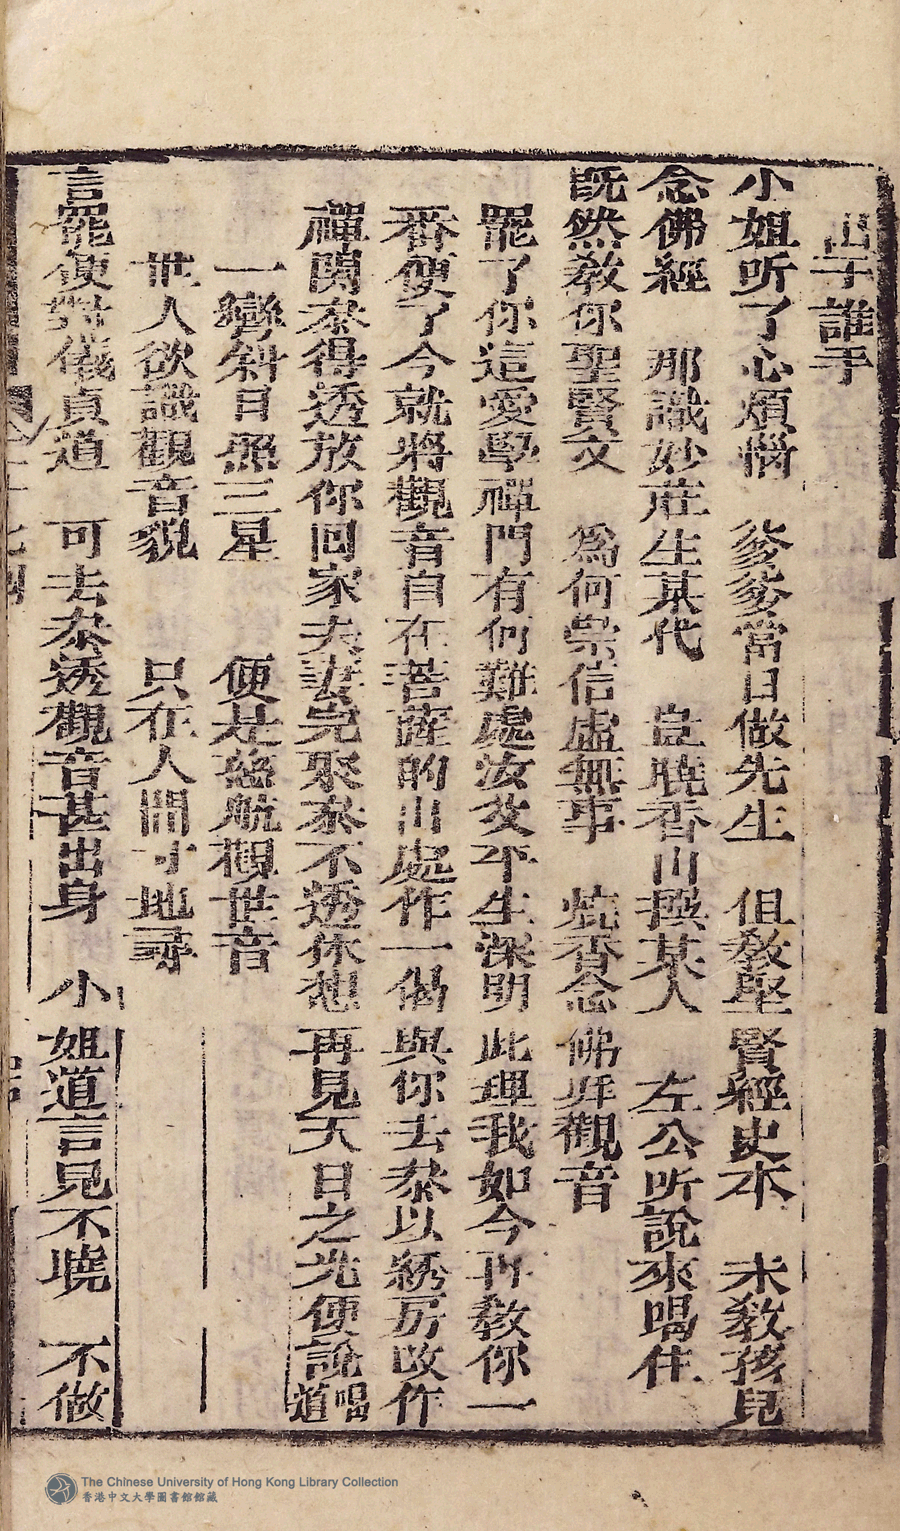 出于誰手
小姐听了心煩惱　爹爹當日做先生　但教圣賢經史本　未教孩兒
念佛經　那識妙莊生某代　豈曉香山撰某人　左公所說來喝住
既然教你聖賢文　為何崇信虛無事　燒香念佛拜觀音
罷了你這愛學禪門有何難處汝父平生深明此理我如今再教你一
番便了今就將觀音自在菩薩的出處作一偈與你去叅以綉房改作
禪関叅得透放你回家夫妻完聚叅不透休想再見天日之光便說唱道
一彎斜月照三星　便是慈航觀世音
世人欲識觀音貌　只在人間寸地尋
言罷便對儀貞道　可去叅透觀音甚出身　小姐道言見不曉　不做
The Chinese University of Hong Kong Library Collection
香港中文大學圖書館館藏